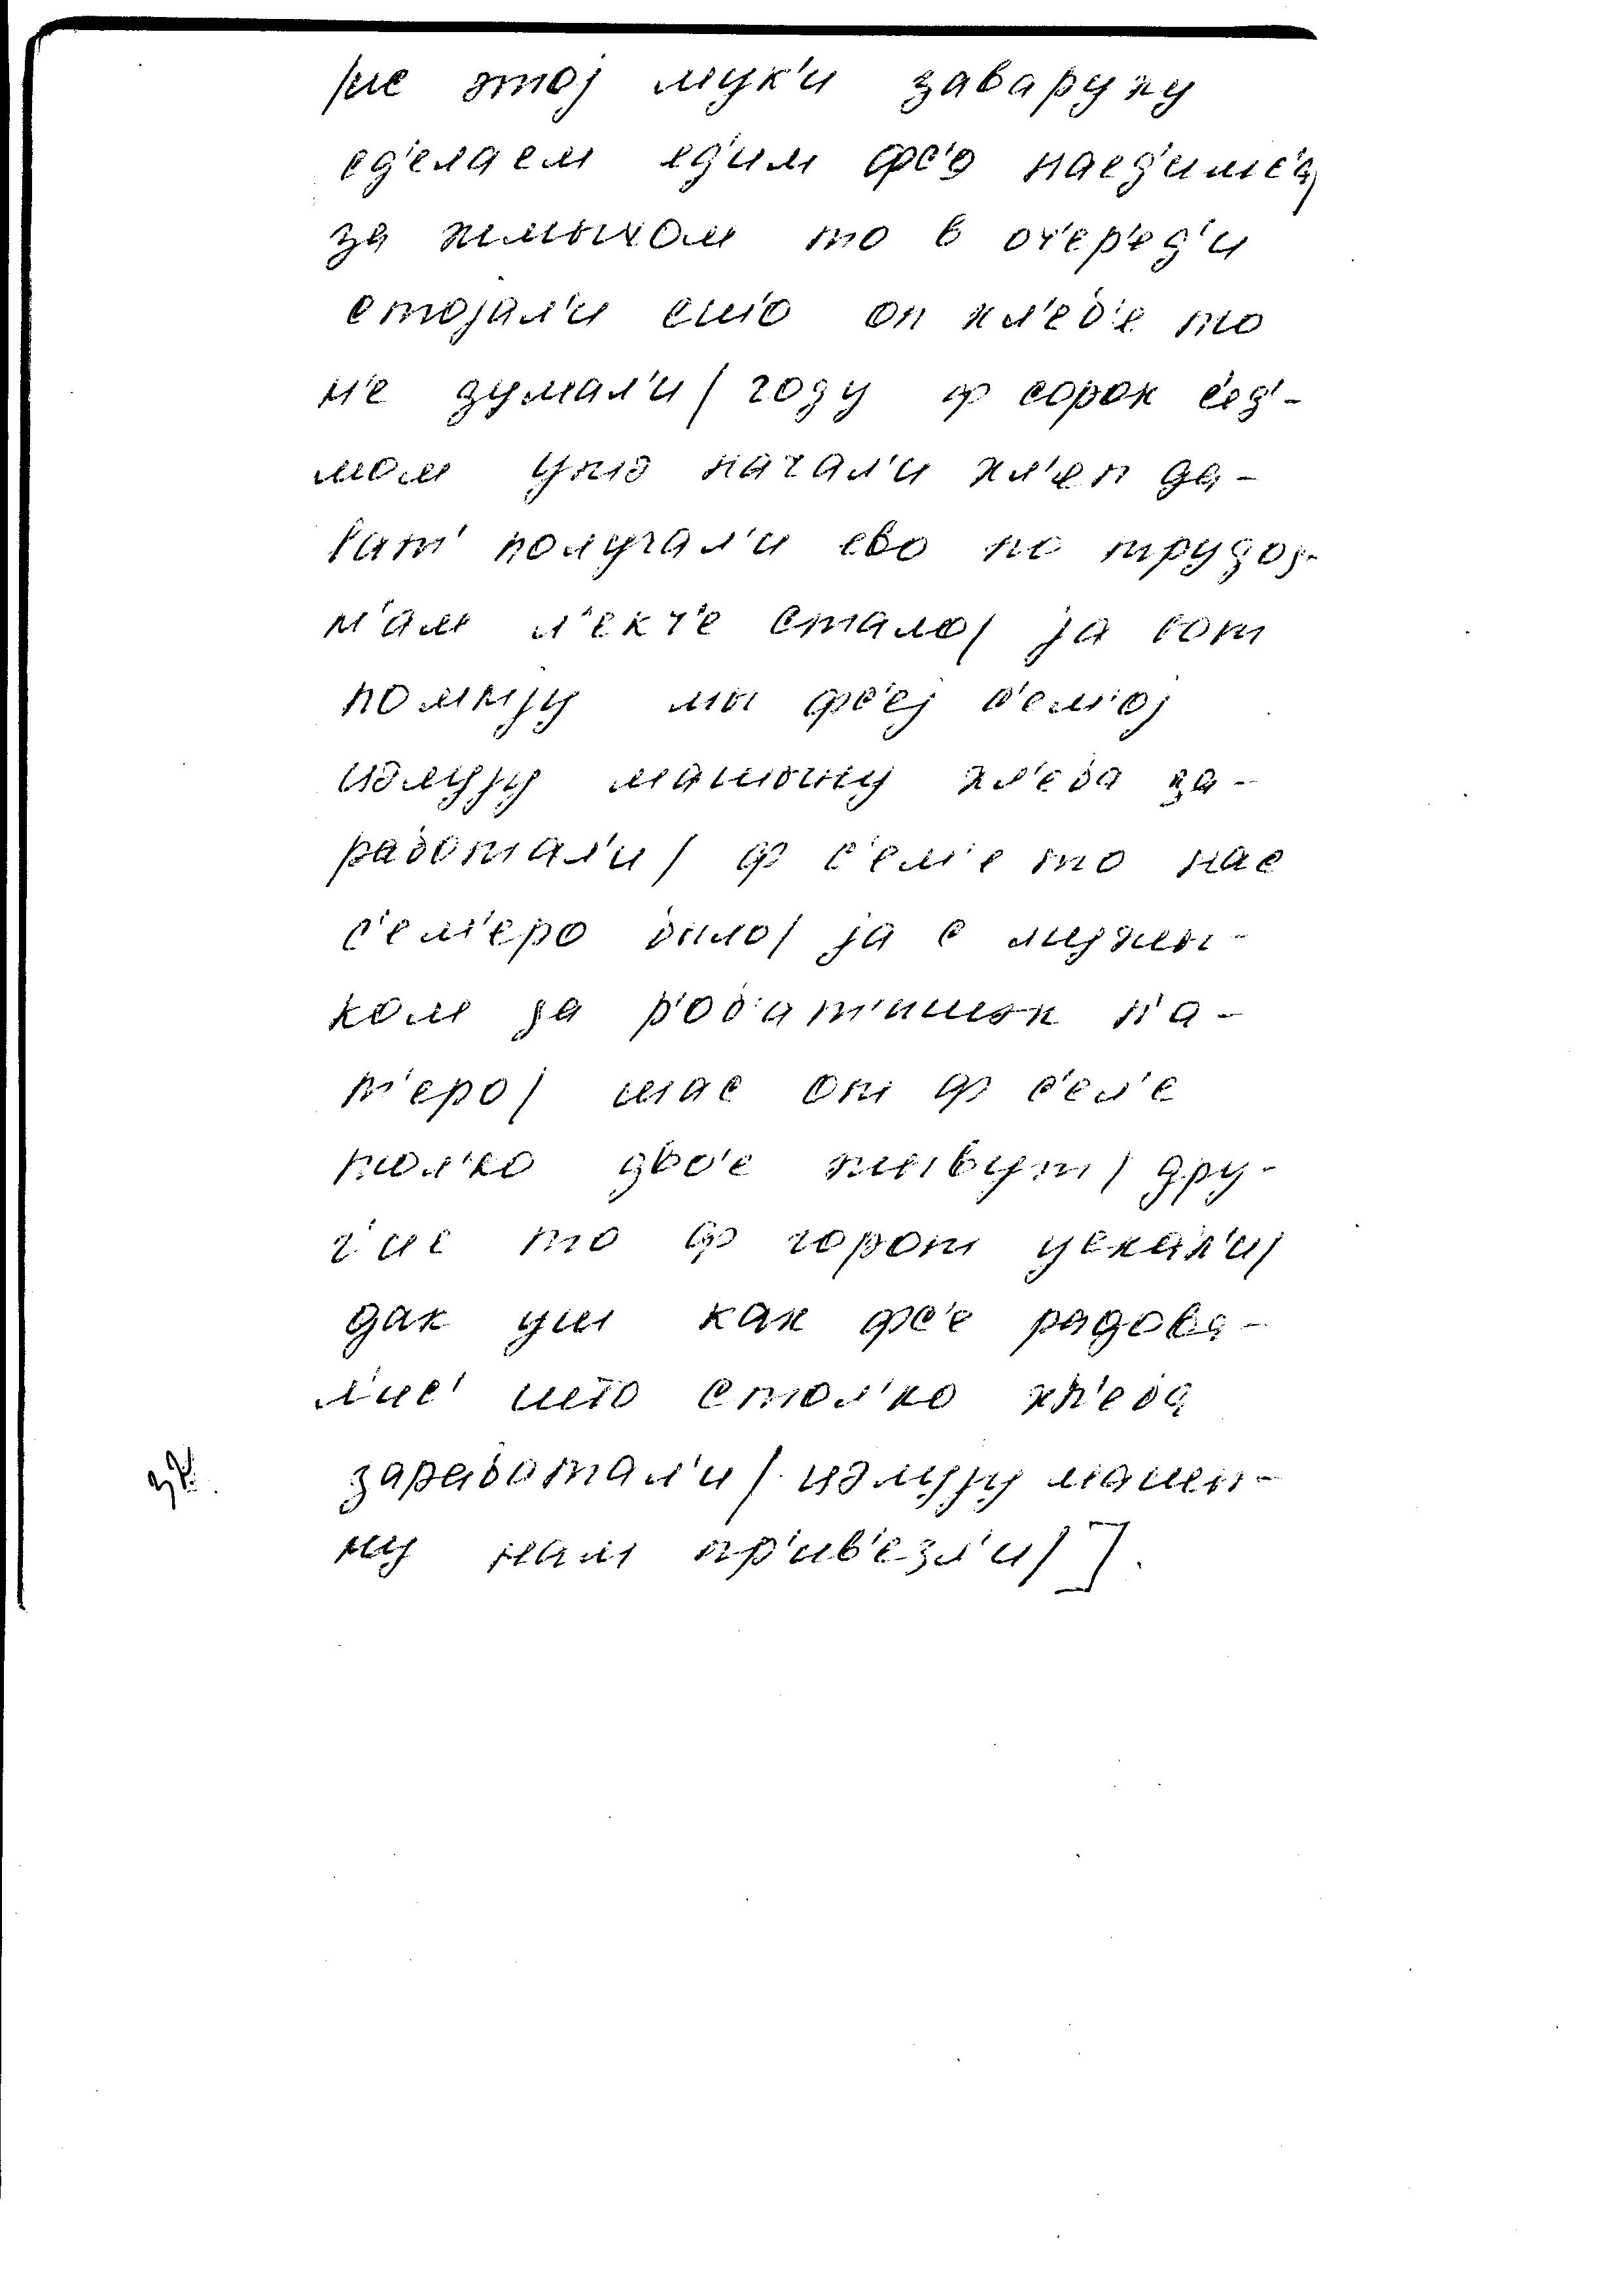 /ис этој мук'и заваруху
сд'елаем јед'им фс'о најед'имс'а/
за жмыхом то в оч'ер'ед'и
стојал'и ешо оп хл'еб'е то
н'е думал'и / году ф сорок с'ед'-
мом ужо начал'и хл'еп да-
ват' получал'и ево по трудод-
н'ам л'екч'е стало / ја вот
помн'у мы фс'еј с'ем'ој
целују машыну хл'еба за-
работал'и / ф с'ем'е то нас
с'ем'еро было / ја с мужы-
ком да р'об'ат'ишок п'а-
т'еро / шас от ф с'ел'е
тол'ко дво'е жывут / дру-
г'ие то ф горот уехал'и /
дак уш как фс'е радова-
л'ис' што стол'ко хл'еба
заработал'и / целују машы-
ну нам пр'ив'езл'и / ].